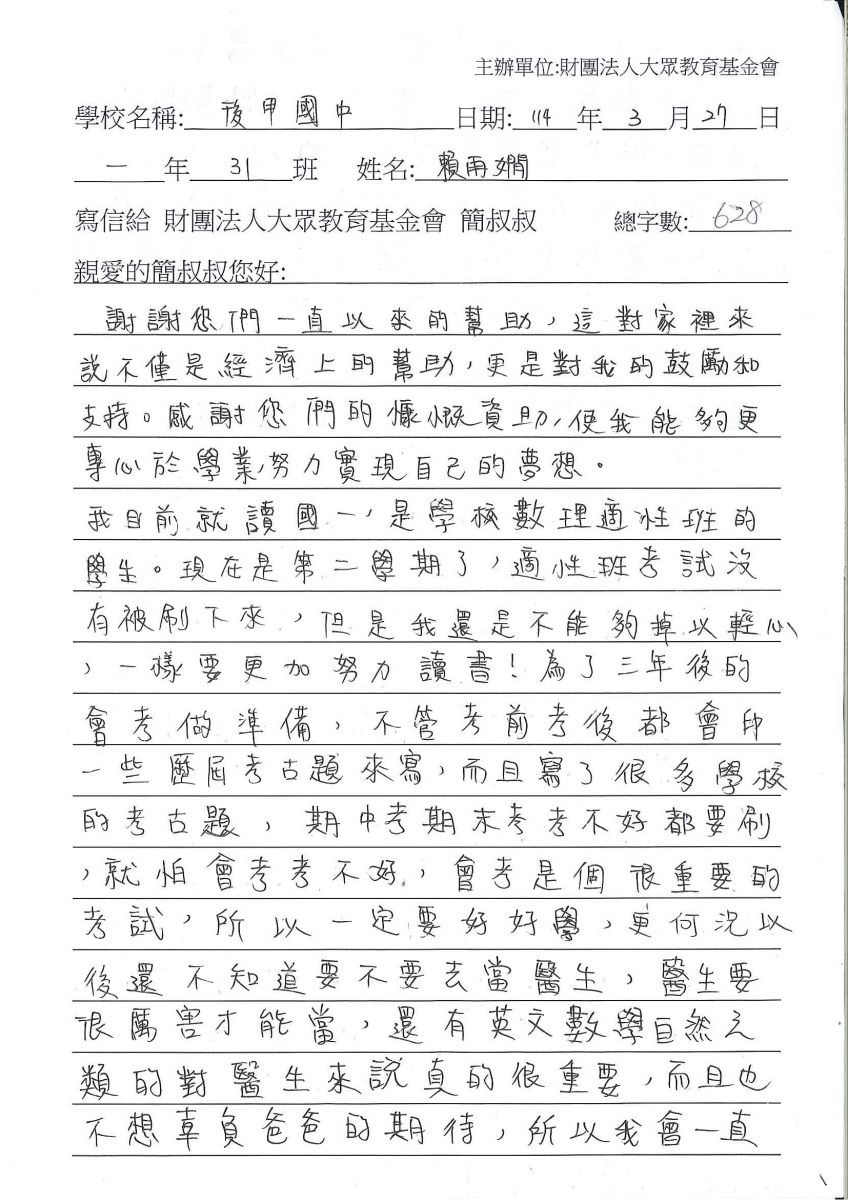 主辦單位:財團法人大眾教育基金會
學校名稱: 後甲國中 日期: 114 年 3 月 27 日
一 年 31 班 姓名: 賴雨嫺
寫信給 財團法人大眾教育基金會 簡叔叔 總字數: 628
親愛的簡叔叔您好:
謝謝您們一直以來的幫助，這對家裡來
說不僅是經濟上的幫助，更是對我的鼓勵和
支持。感謝您們的慷慨資助，使我能夠更
專心於學業，努力實現自己的夢想。
我目前就讀國一，是學校數理適性班的
學生。現在是第二學期了，適性班考試沒
有被刷下來，但是我還是不能夠掉以輕心
，一樣要更加努力讀書！為了三年後的
會考做準備，不管考前考後都會印
一些歷屆考古題來寫，而且寫了很多學校
的考古題，期中考期末考考不好都要刷
，就怕會考考不好，會考是個很重要的
考試，所以一定要好好學，更何況以
後還不知道要不要去當醫生，醫生要
很厲害才能當，還有英文數學自然之
類的對醫生來說真的很重要，而且也
不想辜負爸爸的期待，所以我會一直